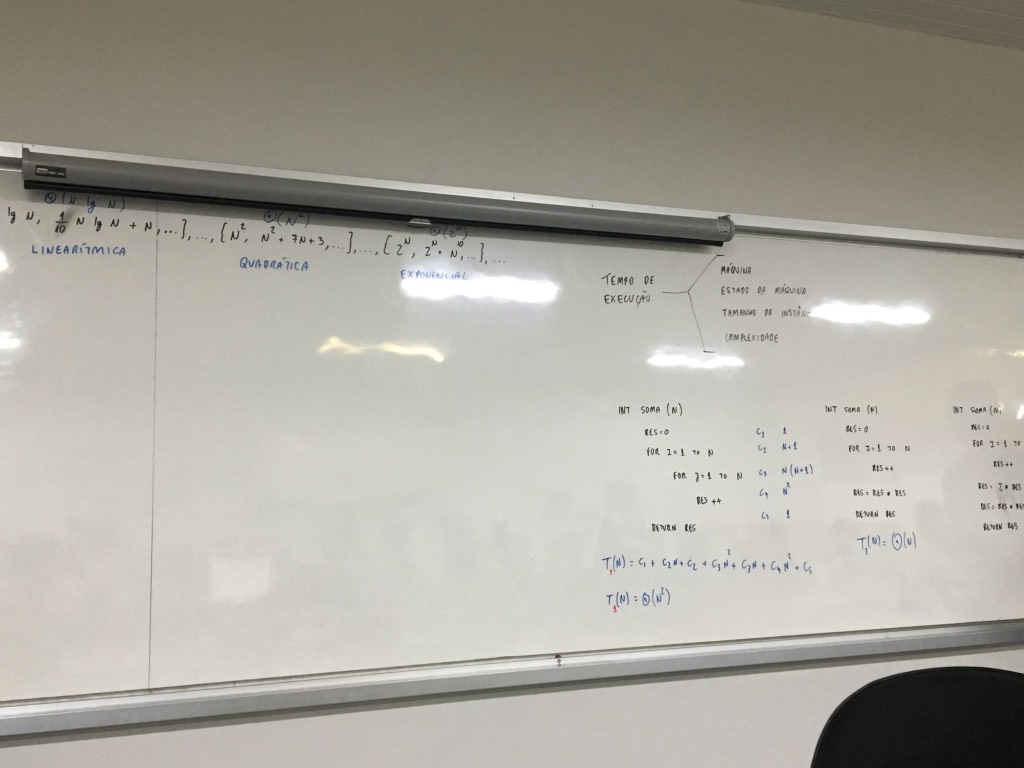 Θ(N lg N) Θ(N²) Θ(2ᴺ)
lg N, 1/10 N lg N + N,...},...,{N², N² + 7N+3,...},...,{2ᴺ, 2ᴺ + N¹⁰,...},...
LINEARÍTMICA
QUADRÁTICA
EXPONENCIAL
TEMPO DE
EXECUÇÃO
MÁQUINA
ESTADO DA MÁQUINA
TAMANHO DA
COMPLEXIDADE
INT SOMA (N)
RES=0 C₁ 1
FOR I=1 TO N C₂ N+1
FOR J=1 TO N C₃ N(N+1)
RES ++ C₄ N²
RETURN RES C₅ 1
T₁(N) = C₁ + C₂N + C₂ + C₃N² + C₃N + C₄N² + C₅
T₁(N) = Θ(N²)
INT SOMA (N)
RES=0
FOR I=1 TO N
RES++
RES = RES * RES
RETURN RES
T₂(N) = Θ(N)
INT SOMA (N)
RES=0
FOR I=1 TO
RES++
RES = 2 * RES
RES = RES * RES
RETURN RES